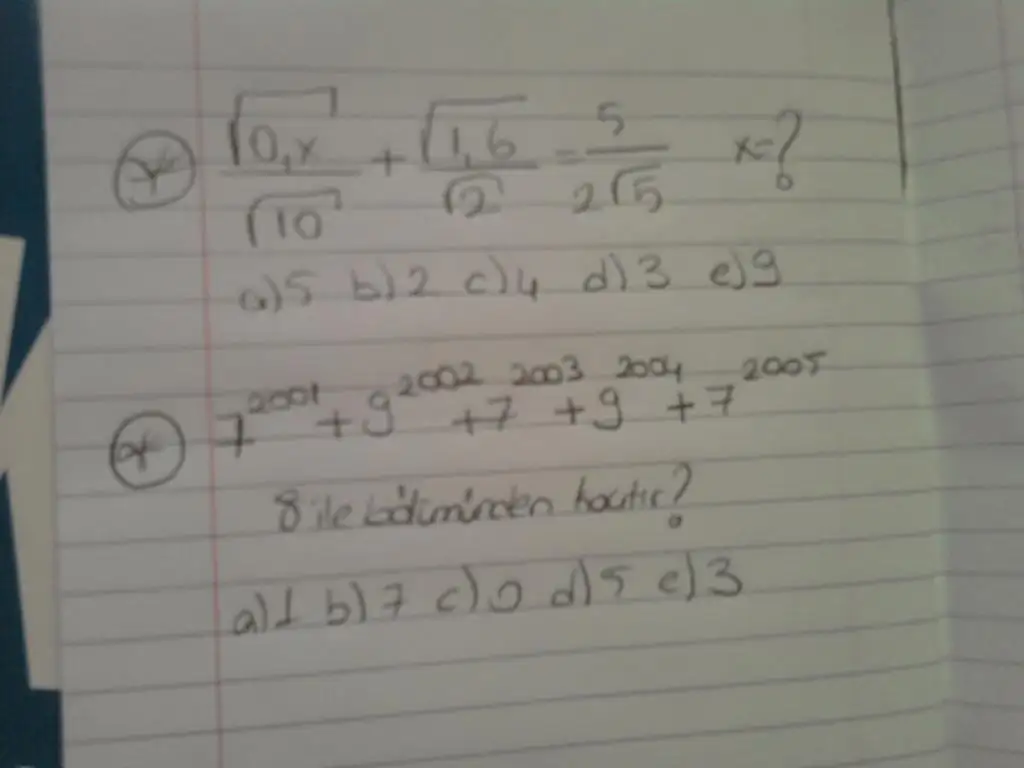 * √0,x / √10 + √1,6 / √2 = 5 / 2√5 x=?
a)5 b)2 c)4 d)3 e)9
* 7^2001 + 9^2002 + 7^2003 + 9^2004 + 7^2005
8 ile bölümünden kaçtır?
a)1 b)7 c)0 d)5 e)3